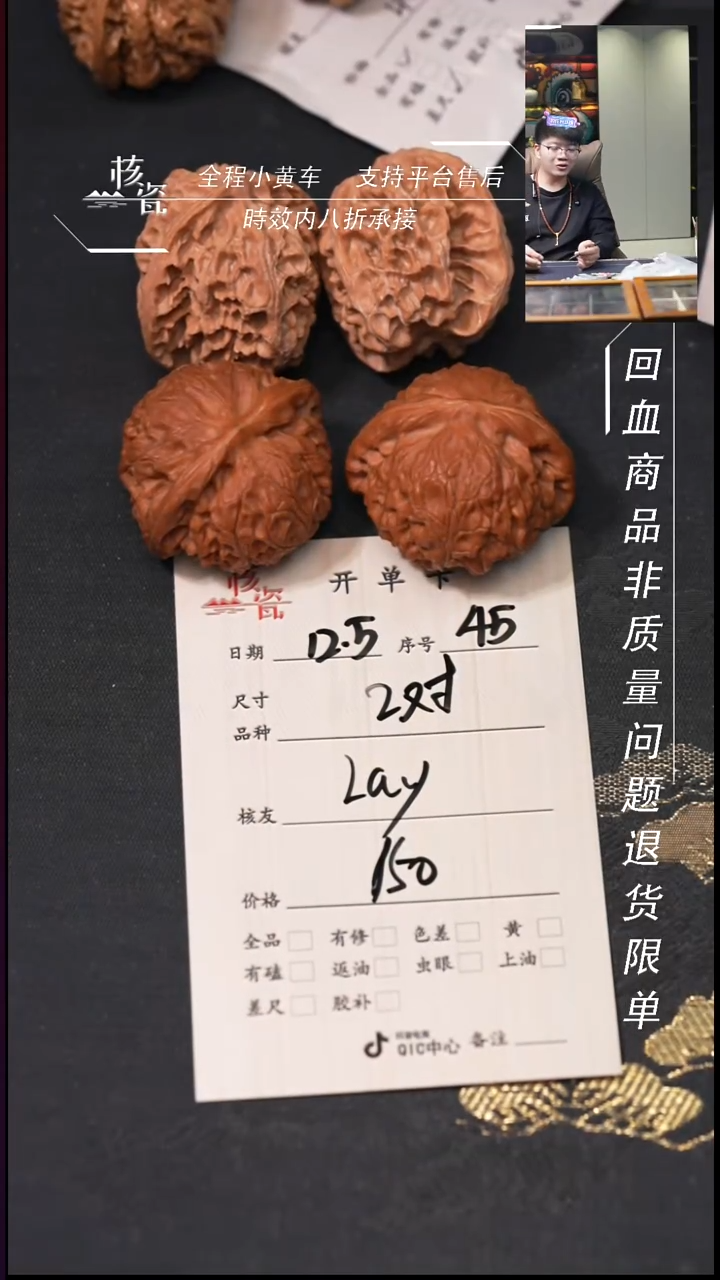 核瓷
全程小黄车 支持平台售后
時效内八折承接
回血商品非质量问题退货限单
核瓷
开单卡
日期 12.5 序号 45
尺寸
品种
2对
核友 Lay
价格 150
全品 有修 色差 黄
有磕 返油 虫眼 上油
差尺 胶补
QIC中心 备注